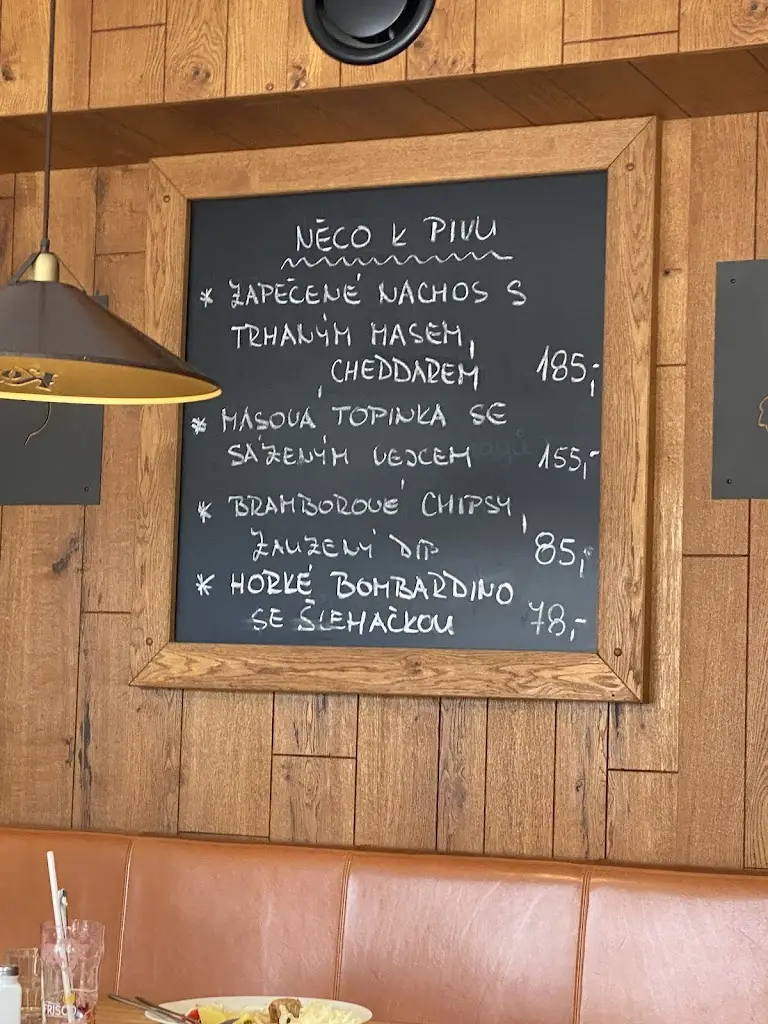 NĚCO K PIVU
* ZAPEČENÉ NACHOS S
TRHANÝM MASEM,
CHEDDAREM 185,-
* MASOVÁ TOPINKA SE
SÁZENÝM VEJCEM 155,-
* BRAMBOROVÉ CHIPSY,
ZAUZENÝ DIP 85,-
* HORKÉ BOMBARDINO
SE ŠLEHAČKOU 78,-
FRISCO